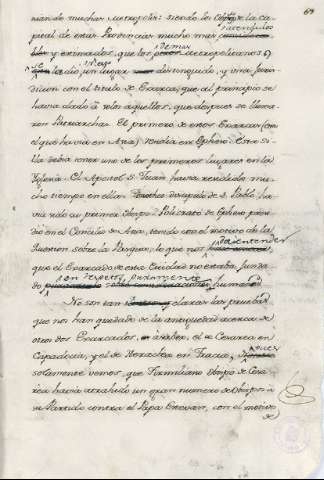 69
nian de muchas Metropolis: siendo los Obispos de la ca-
pital de estas Provincias mucho mas
y estimados, que los demas metropolitanos
se les dio un lugar distinguido, y una Juris-
diccion con el titulo de Exarca, que al principio se
havia dado a todos aquellos, que despues se llama-
ron Patriarchas. El primero de estos Exarcas (con
el qual havia en Asia) residia en Epheso. Esta si-
lla debia tener uno de los primeros lugares en la
Iglesia. El Apostol S. Juan havia residido mu-
cho tiempo en ella. Timotheo discipulo de S. Pablo ha-
via sido su primer Obispo. Policrato de Epheso presi-
dió en el Concilio de Asia, tenido con el motivo de la
question sobre la Pasqua; lo que nos da a entender
que el Exarcado de esta Ciudad no estaba funda-
do en respeto puramente humano
No son tan claras las pruebas
que nos han quedado de la antiguedad acerca de
otros dos Exarcados, à saber, el de Cesarea en
Capadocia, y el de Heraclea en Tracia, pues
solamente vemos, que Firmiliano Obispo de Cesa-
rea havia atrahido un gran numero de Obispos à
su Partido contra el Papa Estevan, con el motivo
de